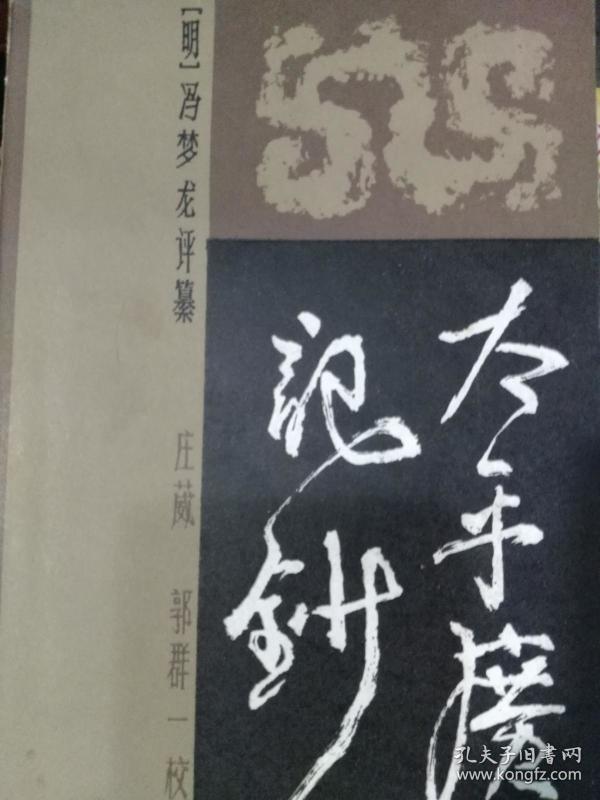 太平广
記鈔
[明]冯梦龙评纂
庄葳 郭群一校
孔夫子旧书网
www.kongfz.com